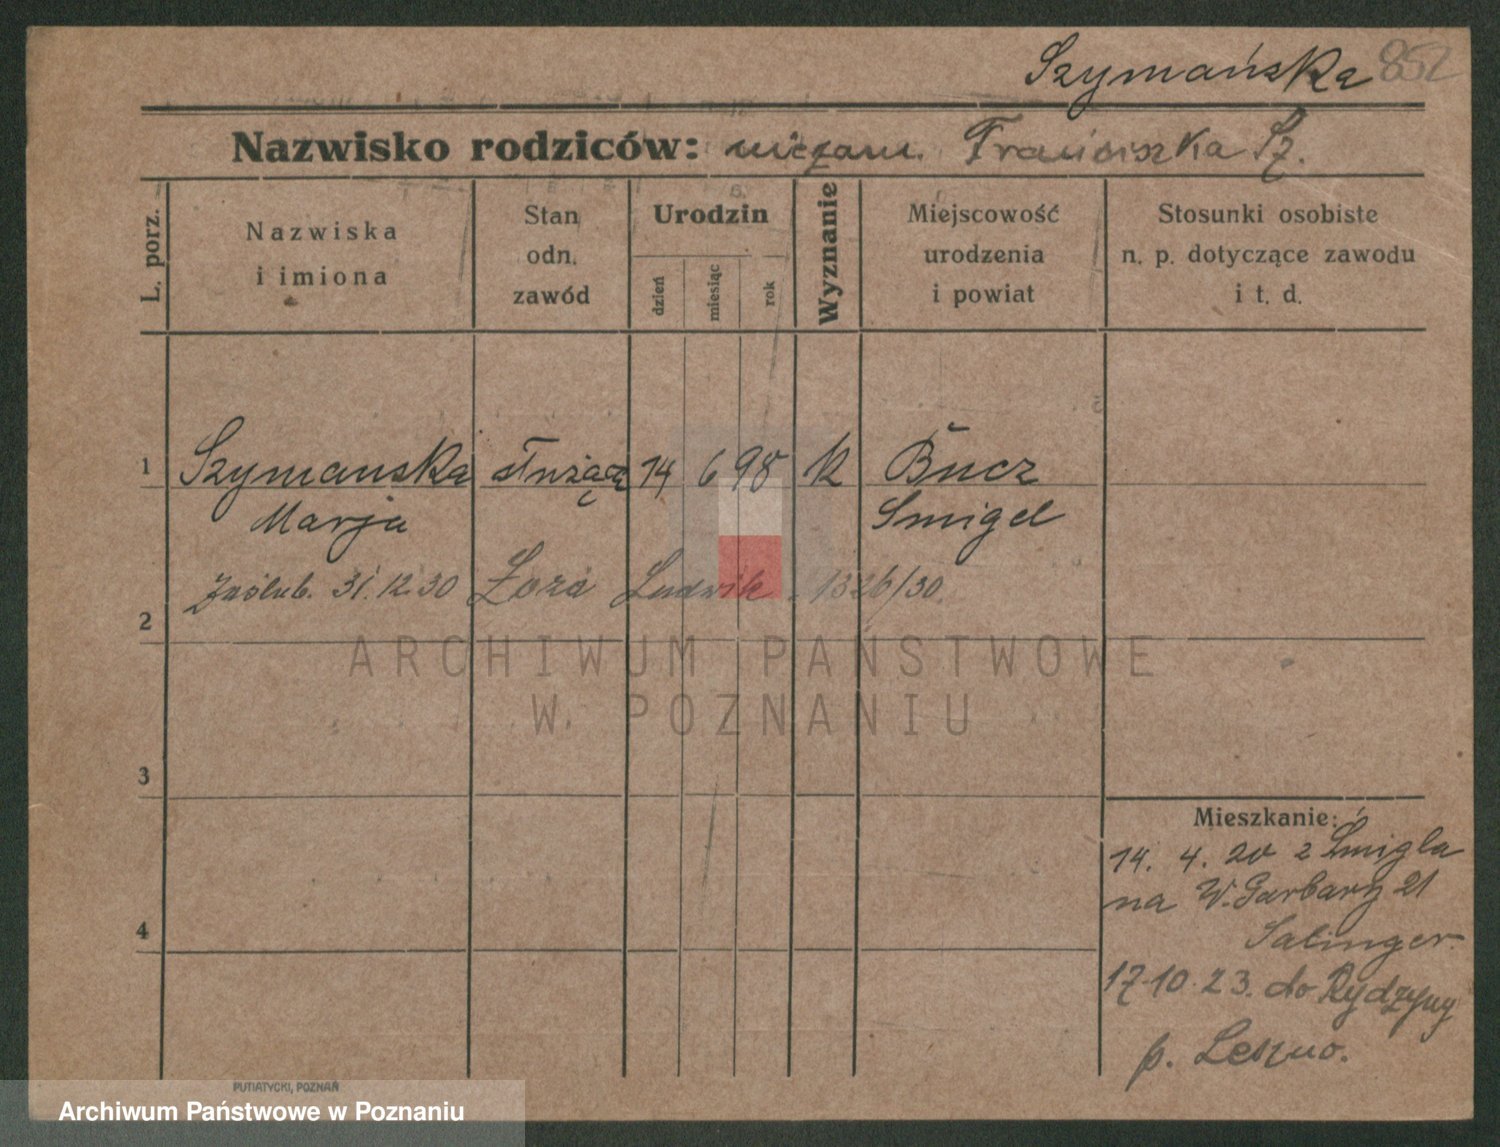 Szymańska 852
Nazwisko rodziców: niezam. Franciszka Sz.
L. porz.
Nazwiska
i imiona
Stan
odn.
zawód
Urodzin
dzień
miesiąc
rok
Wyznanie
Miejscowość
urodzenia
i powiat
Stosunki osobiste
n. p. dotyczące zawodu
i t. d.
1 Szymanska służąca 14 6 98 k Bucz
Marja Smigel
Zaślub. 31.12.30 Ludwik 1326/30
2
ARCHIWUM PAŃSTWOWE
W POZNANIU
3
Mieszkanie:
14. 4. 20 z Śmigla
4 na W. Garbary 21
Salinger.
17.10.23. do Rydzyny
p. Leszno.
PUTIATYCKI, POZNAŃ
Archiwum Państwowe w Poznaniu